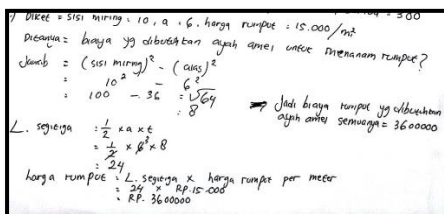 = 300
Diket = sisi miring : 10, a : 6. harga rumput : 15.000/m²
Ditanya = biaya yg dibutuhkan ayah amel untuk menanam rumput?
Jawab = (sisi miring)² - (alas)²
= 10² - 6²
: 100 - 36 = √64
: 8
⇒ Jadi biaya rumput yg dibutuhkan
ayah amel semuanya = 3600000
L. segitiga : 1/2 x a x t
= 1/2 x 6³ x 8
= 24
harga rumput = L. segitiga x harga rumput per meter
= 24 x RP. 15.000
= RP. 3600000